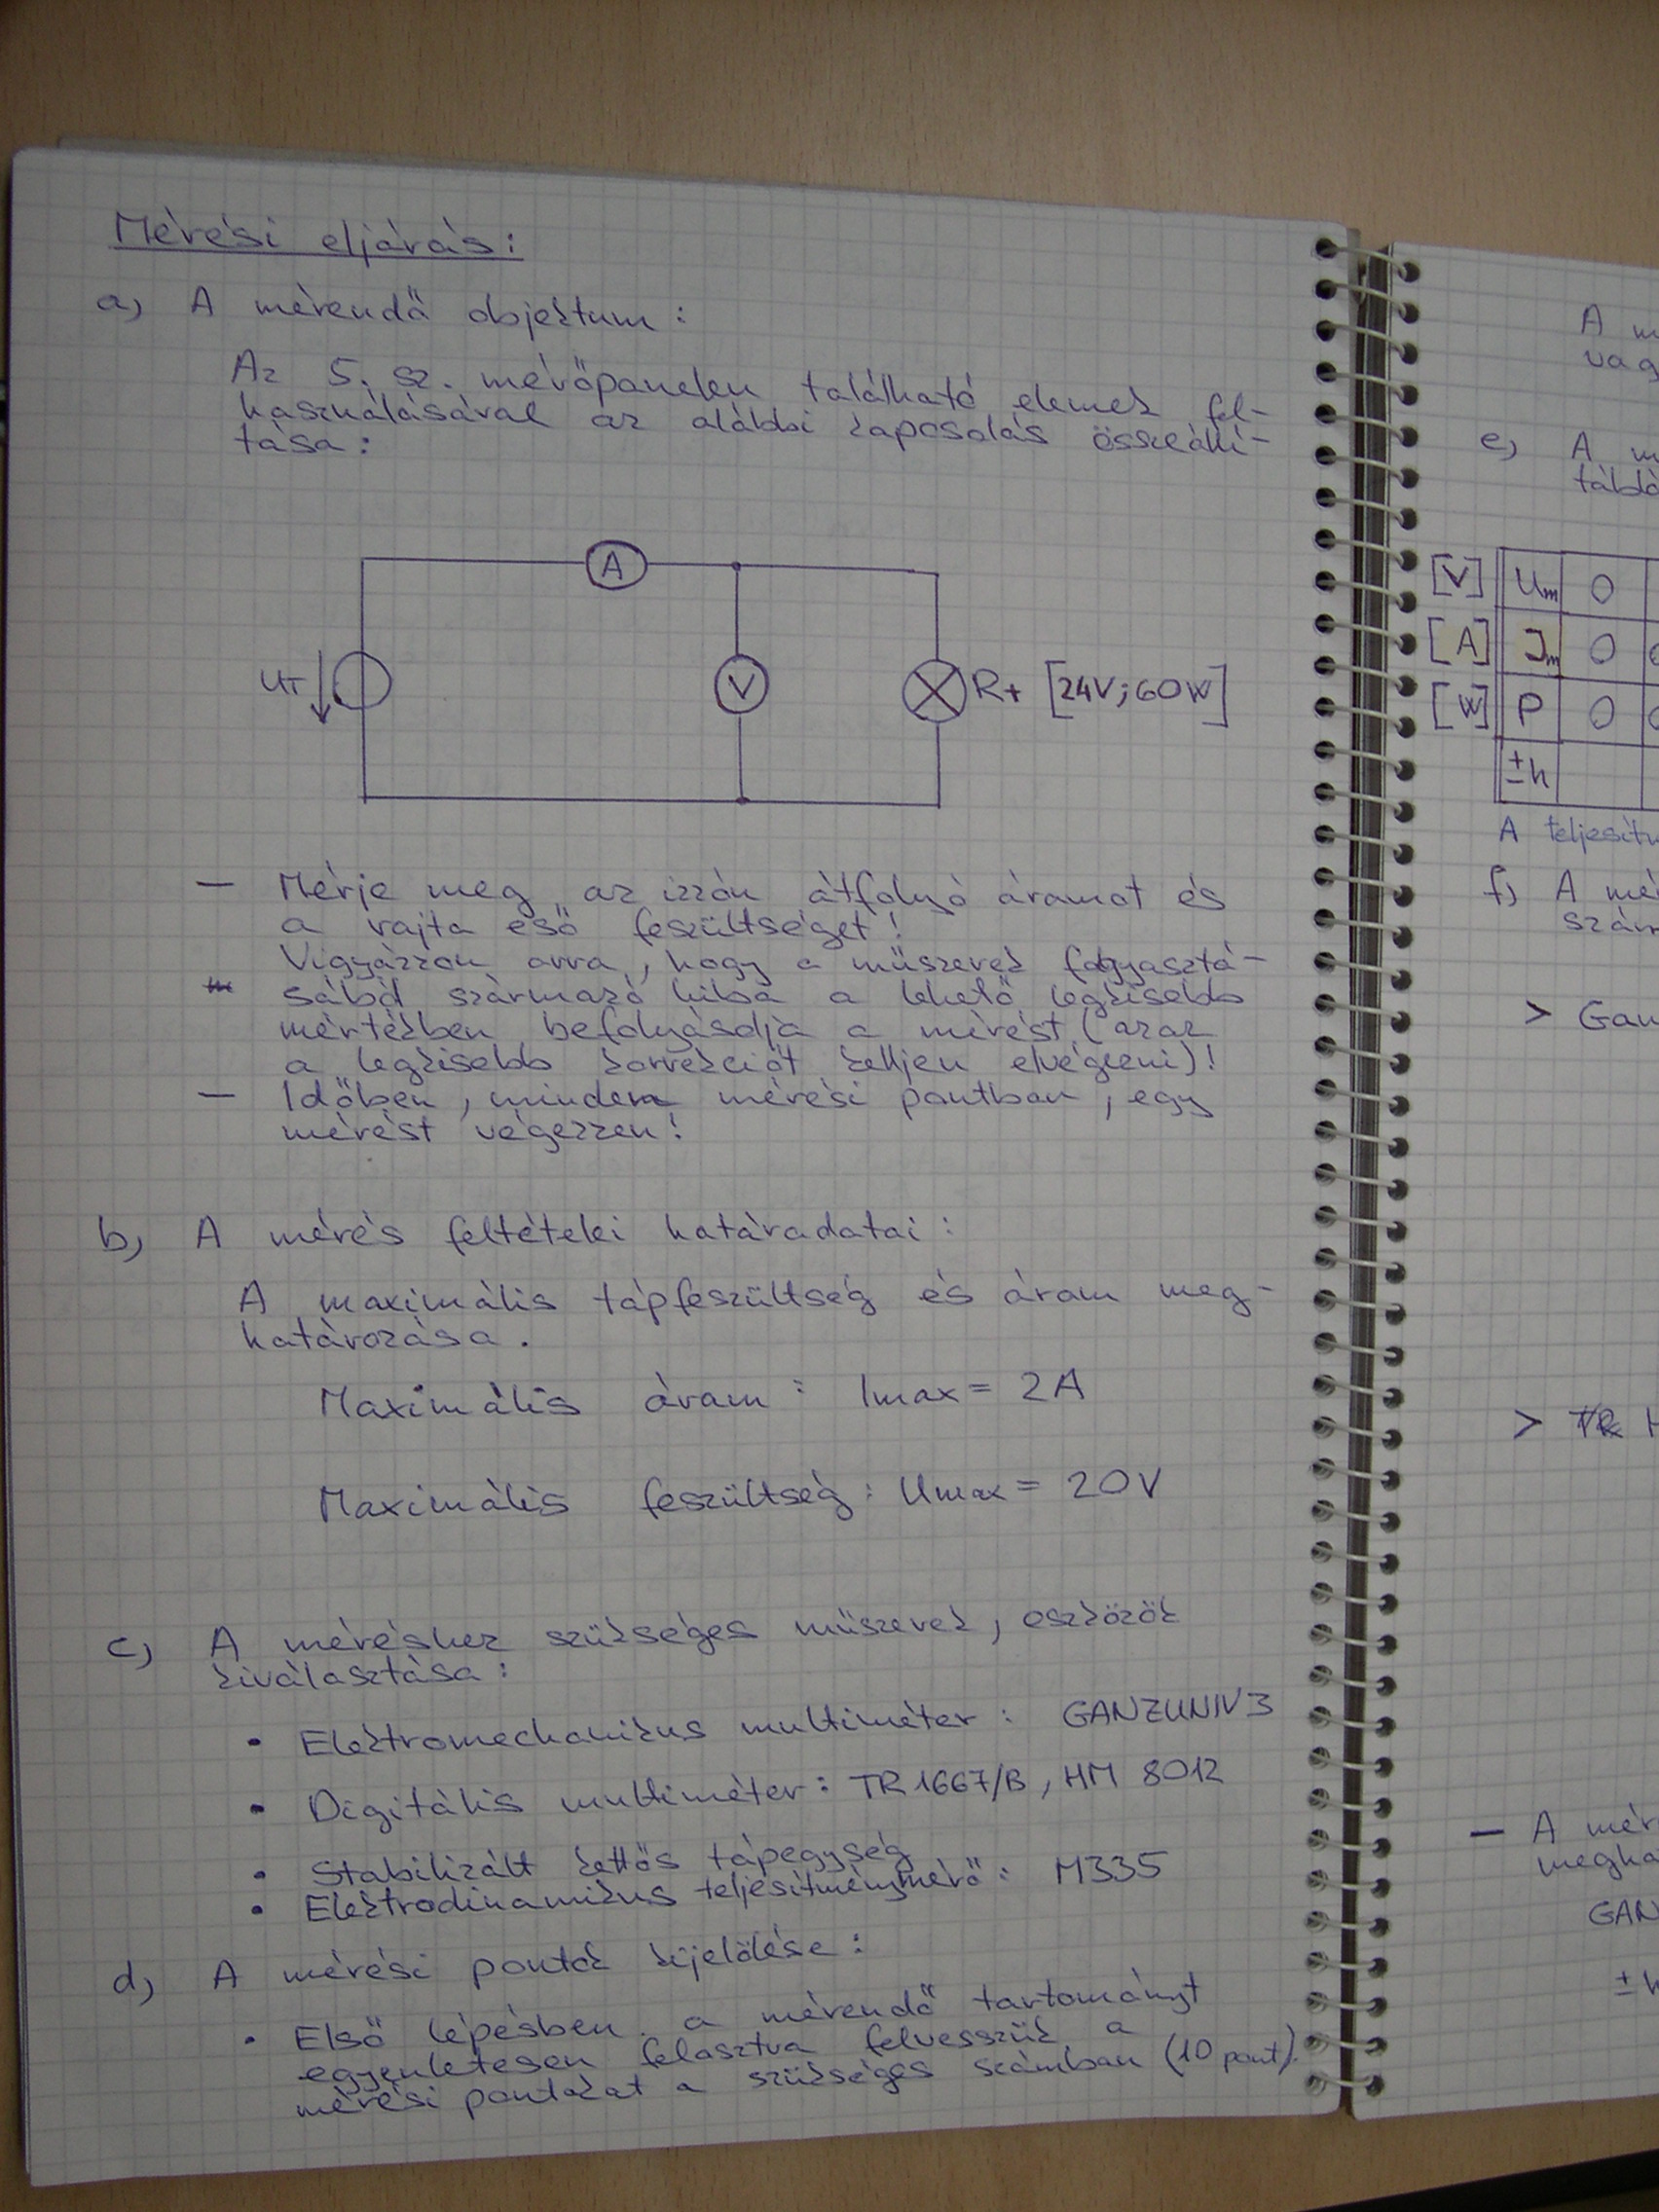 Mérési eljárás:
a, A mérendő objektum:
Az 5. sz. mérőpanelen található elemek fel-
használásával az alábbi kapcsolás összeállí-
tása:
A
UT
V
Rt [24V;60W]
— Mérje meg az izzón átfolyó áramot és
a rajta eső feszültséget!
Vigyázzon arra, hogy a műszerek fogyasztá-
sából származó hiba a lehető legkisebb
mértékben befolyásolja a mérést (azaz
a legkisebb korrekciót kelljen elvégezni)!
— Időben, minden mérési pontban, egy
mérést végezzen!
b, A mérés feltételei határadatai:
A maximális tápfeszültség és áram meg-
határozása.
Maximális áram: Imax = 2A
Maximális feszültség: Umax = 20V
c, A méréshez szükséges műszerek, eszközök
kiválasztása:
• Elektromechanikus multiméter: GANZUNIV3
• Digitális multiméter: TR 1667/B, HM 8012
• Stabilizált kettős tápegység
• Elektrodinamikus teljesítménymérő: M335
d, A mérési pontok kijelölése:
• Első lépésben a mérendő tartományt
egyenletesen felosztva felvesszük a
mérési pontokat a szükséges számban (10 pont).
A m
vag
e, A m
tábl
[V] Um 0
[A] Im 0
[W] P 0
±h
A teljesít
f, A mé
szám
> Gan
> TR H
— A mér
megha
GAN
±h